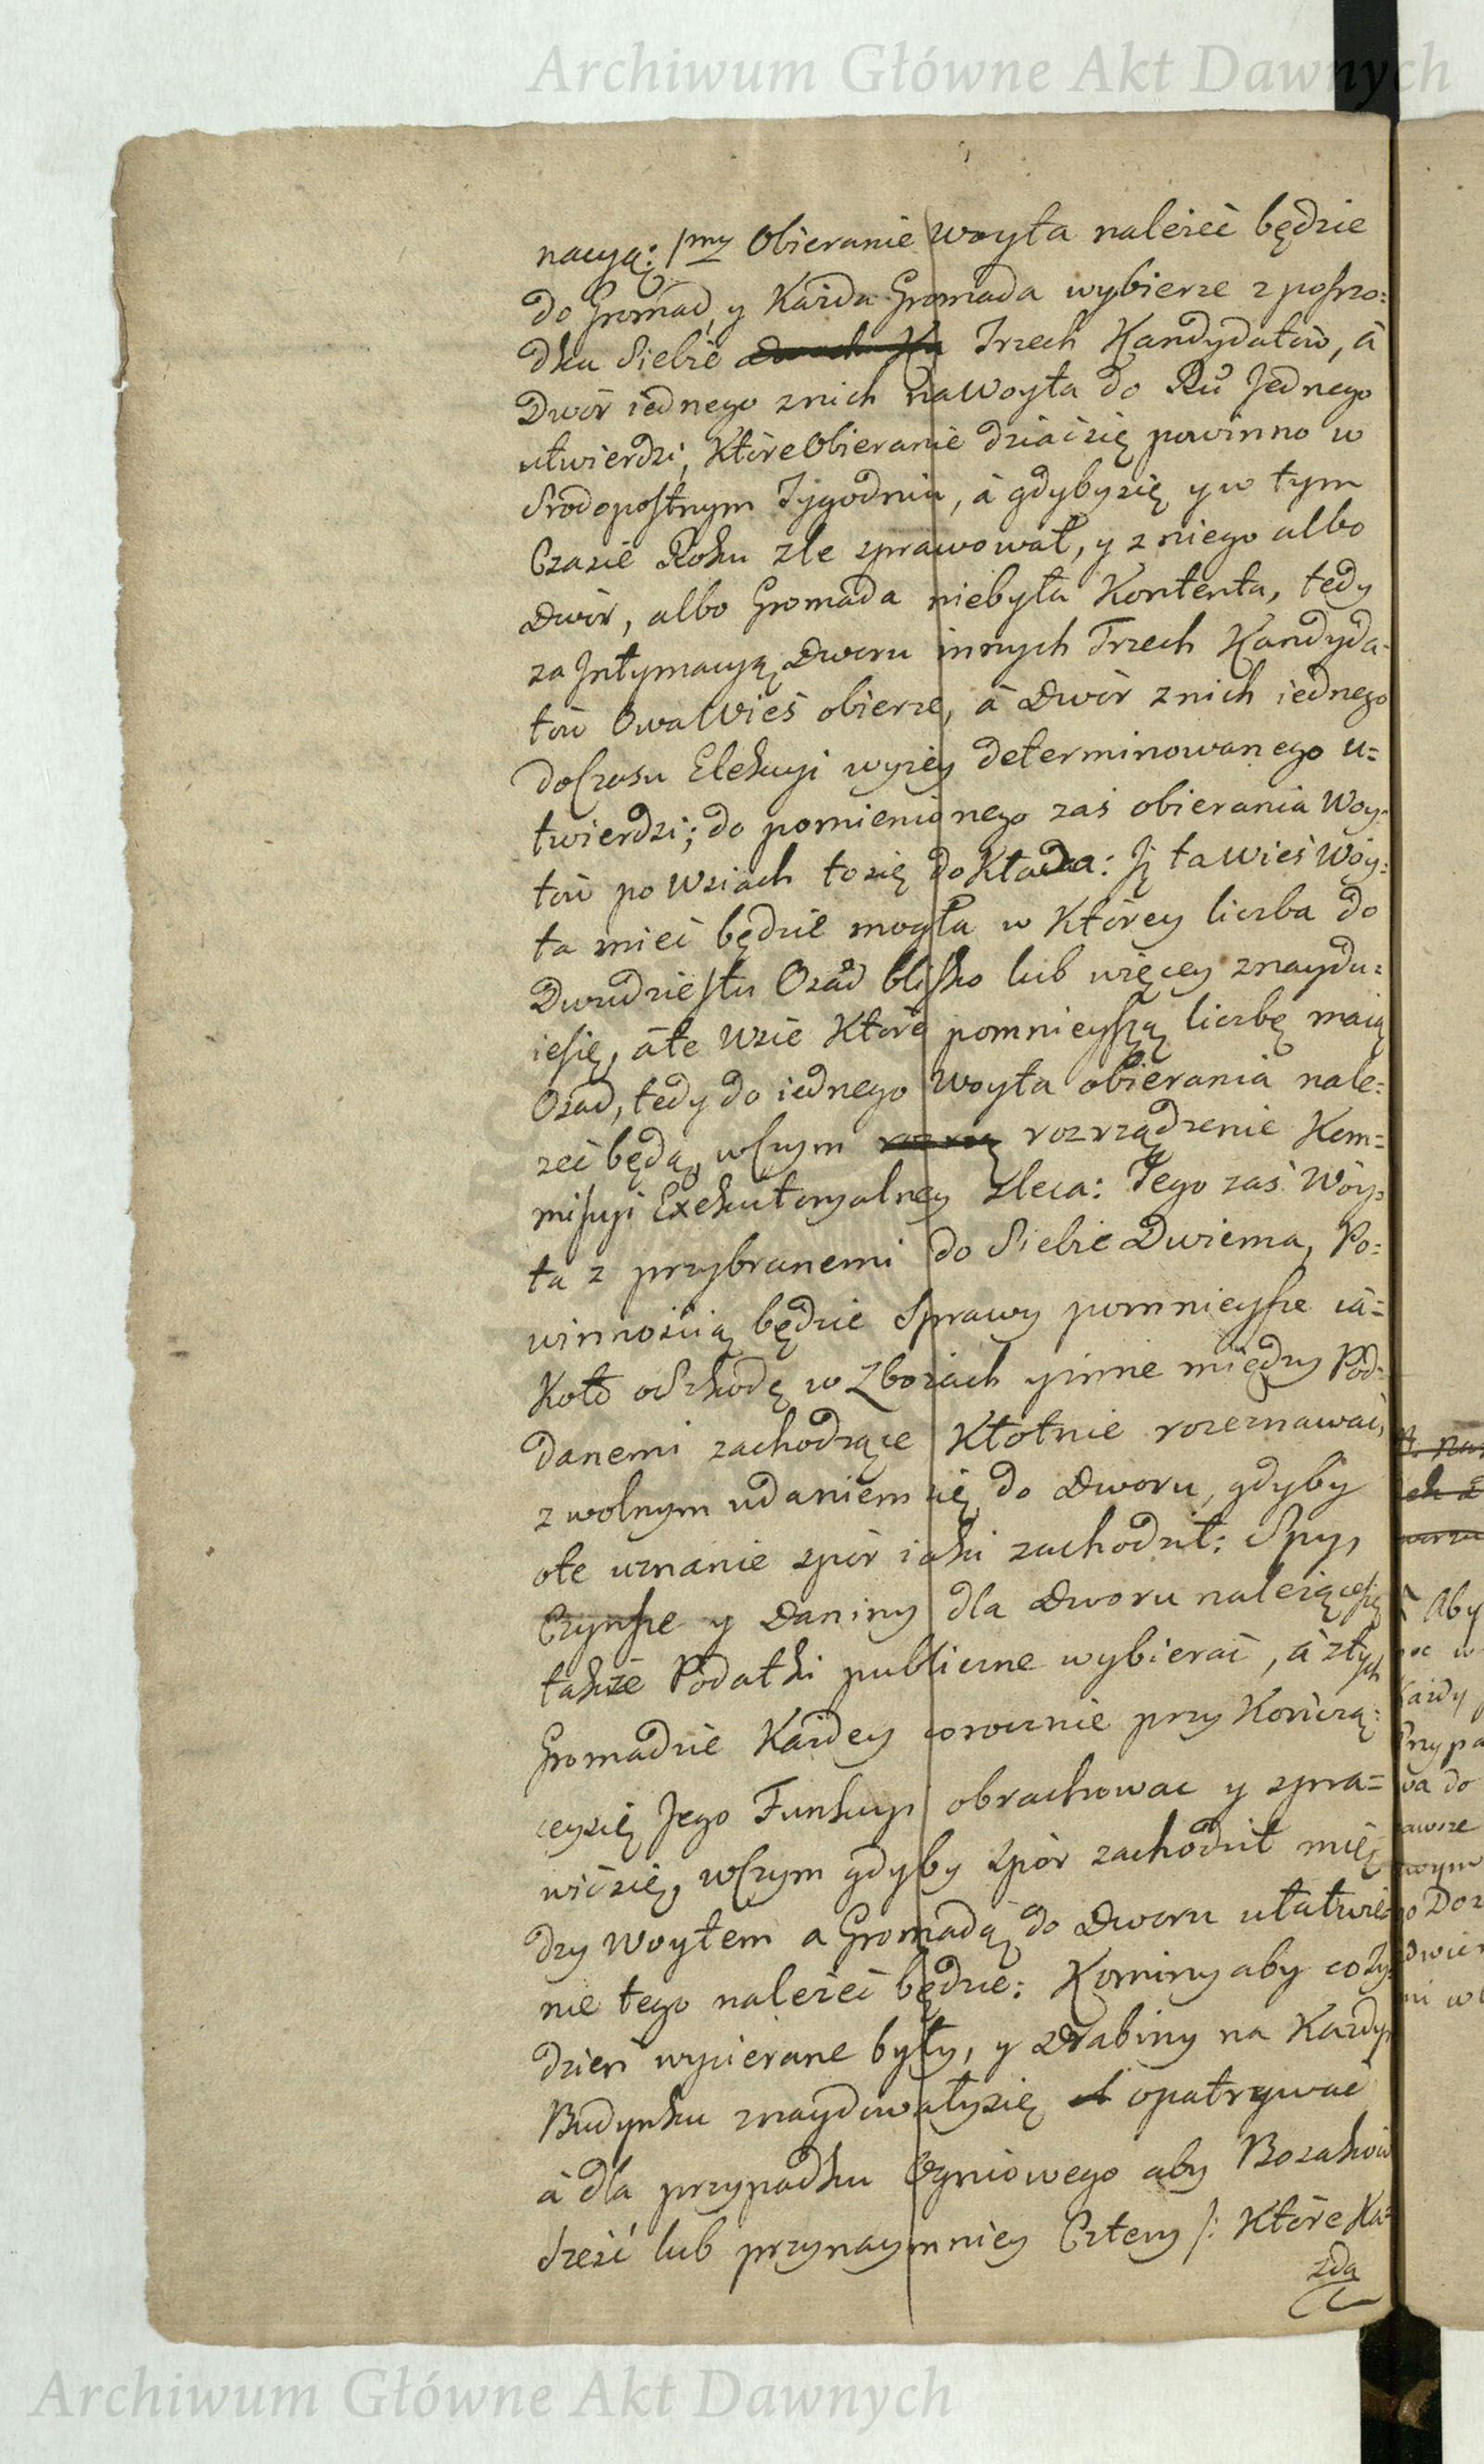 Archiwum Główne Akt Dawnych
nacyą: 1mo Obieranie Woyta należeć będzie
do Gromad, y Każda Gromada wybierze z pośrzo=
dku Siebie Trzech Kandydatów, á
Dwór iednego z nich na Woyta do Ru Jednego
utwierdzi, Które Obieranie dziać się powinno w
Srodopostnym Tygodniu, á gdyby się y w tym
Czasie Roku zle sprawował, y z niego albo
Dwór, albo Gromada niebyła Kontenta, tedy
za Intymacyą Dworu innych Trzech Kandyda=
tów Owa Wieś obierze, á Dwór z nich iednego
do Czasu Elekcyi wyżey determinowanego u=
twierdzi; do pomienionego zaś obierania Woy=
tów po Wsiach to się dokłada: Iż ta Wieś Woy=
ta mieć będzie mogła w Którey liczba do
Dwudziestu Osad blisko lub więcey znaydu=
ie się, á te Wsie Które pomnieyszą liczbę maią
Osad, tedy do iednego Woyta obierania nale=
żeć będą, w Czym rozrządzenie Kom=
missyi Exekutoryalney zleca: Tego zaś Woy=
ta z przybranemi do Siebie Dwiema, Po=
winnością będzie Sprawy pomnieysze ia=
Koto o Szkodę w Zbożach y inne między Pod=
danemi zachodzące Kłotnie rozeznawać,
z wolnym udaniem się do Dworu, gdyby
o te uznanie spór iaki zachodził: Spy,
Czynsze y Daniny dla Dworu należące się
także Podatki publiczne wybierać, á z tych
Gromadzie Każdey corocznie przy Kończą=
cey się Jego Funkcyi obrachować y spra=
wić się, w Czym gdyby spór zachodził mię=
dzy Woytem a Gromadą do Dworu ułatwie=
nie tego należeć będzie: Kominy aby co Ty=
dzień wycierane były, y Drabiny na Każdym
Budynku znaydowały się opatrywać
á dla przypadku Ogniowego aby Bosaków
sześć lub przynaymniey Cztery /: Które Ka=
żda
Archiwum Główne Akt Dawnych